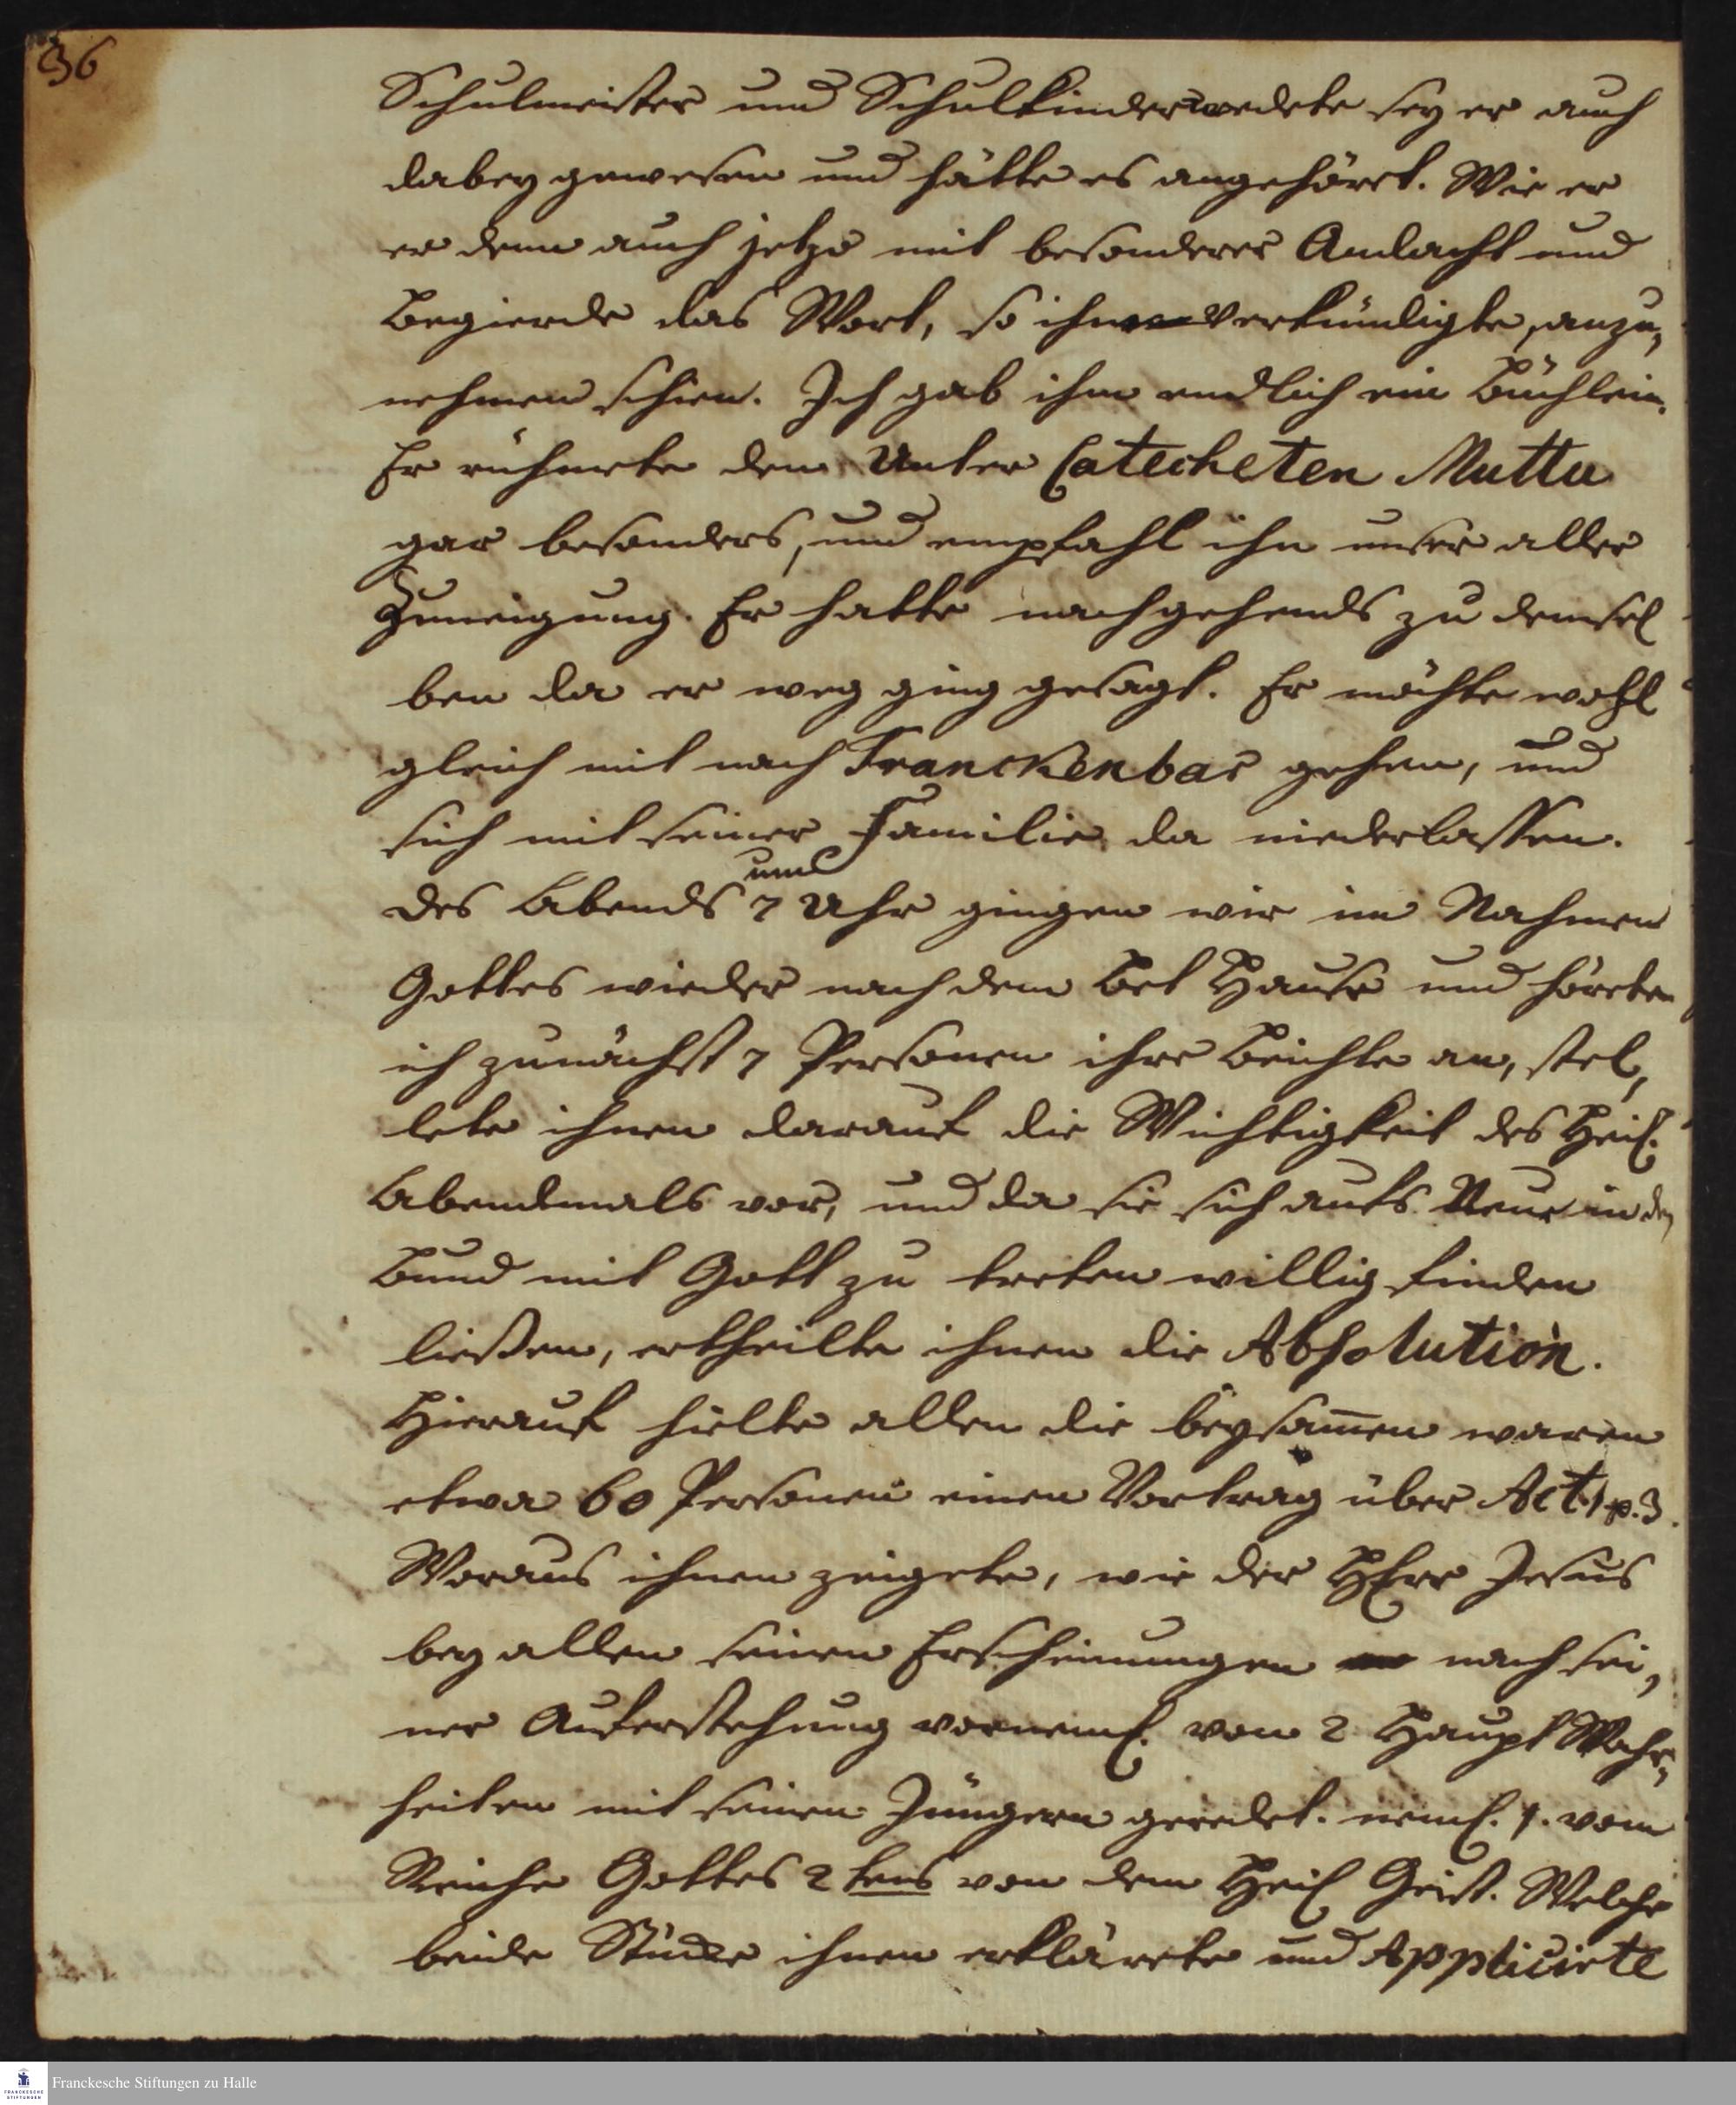 36
Schulmeister und Schulkinder redete sey er auch
dabey gewesen und hätte es angehöret. Wie er
er denn auch jetzo mit besonderer Andacht und
Begierde das Wort, so ihm verkündigte, anzu„
nehmen schien. Ich gab ihm endlich ein Büchlein.
Er rühmete den Unter Catecheten Muttu
gar besonders, und empfahl ihn unser aller
Zuneigung. Er hatte nachgehends zu demsel
ben da er weg ging gesagt. Er möchte wohl
gleich mit nach Franckenbar gehen, und
sich mit seiner Familie da niederlassen.
Des Abends um 7 Uhr gingen wir im Nahmen
Gottes wieder nach dem Bet Hause und hörete
ich zunächst 7 Personen ihre Beichte an, stel„
lete ihnen darauf die Wichtigkeit des Heil.
Abendmals vor, und da sie sich aufs Neue in den
Bund mit Gott zu treten willig finden
ließen, ertheilte ihnen die Absolution.
Hierauf hielte allen die beysam̄en waren
etwa 60 Personen einen Vortrag über Act. 1 p. 3.
Woraus ihnen zeigete, wie der HErr Jesus
bey allen seinen Erscheinungen nach sei„
ner Auferstehung vorneml. von 2 Haupt Wahr„
heiten mit seinen Jüngern geredet. neml. 1. vom
Reiche Gottes 2 tens von dem Heil Geist. Welche
beide Stücke ihnen erklärete und Applicirte
Franckesche Stiftungen zu Halle